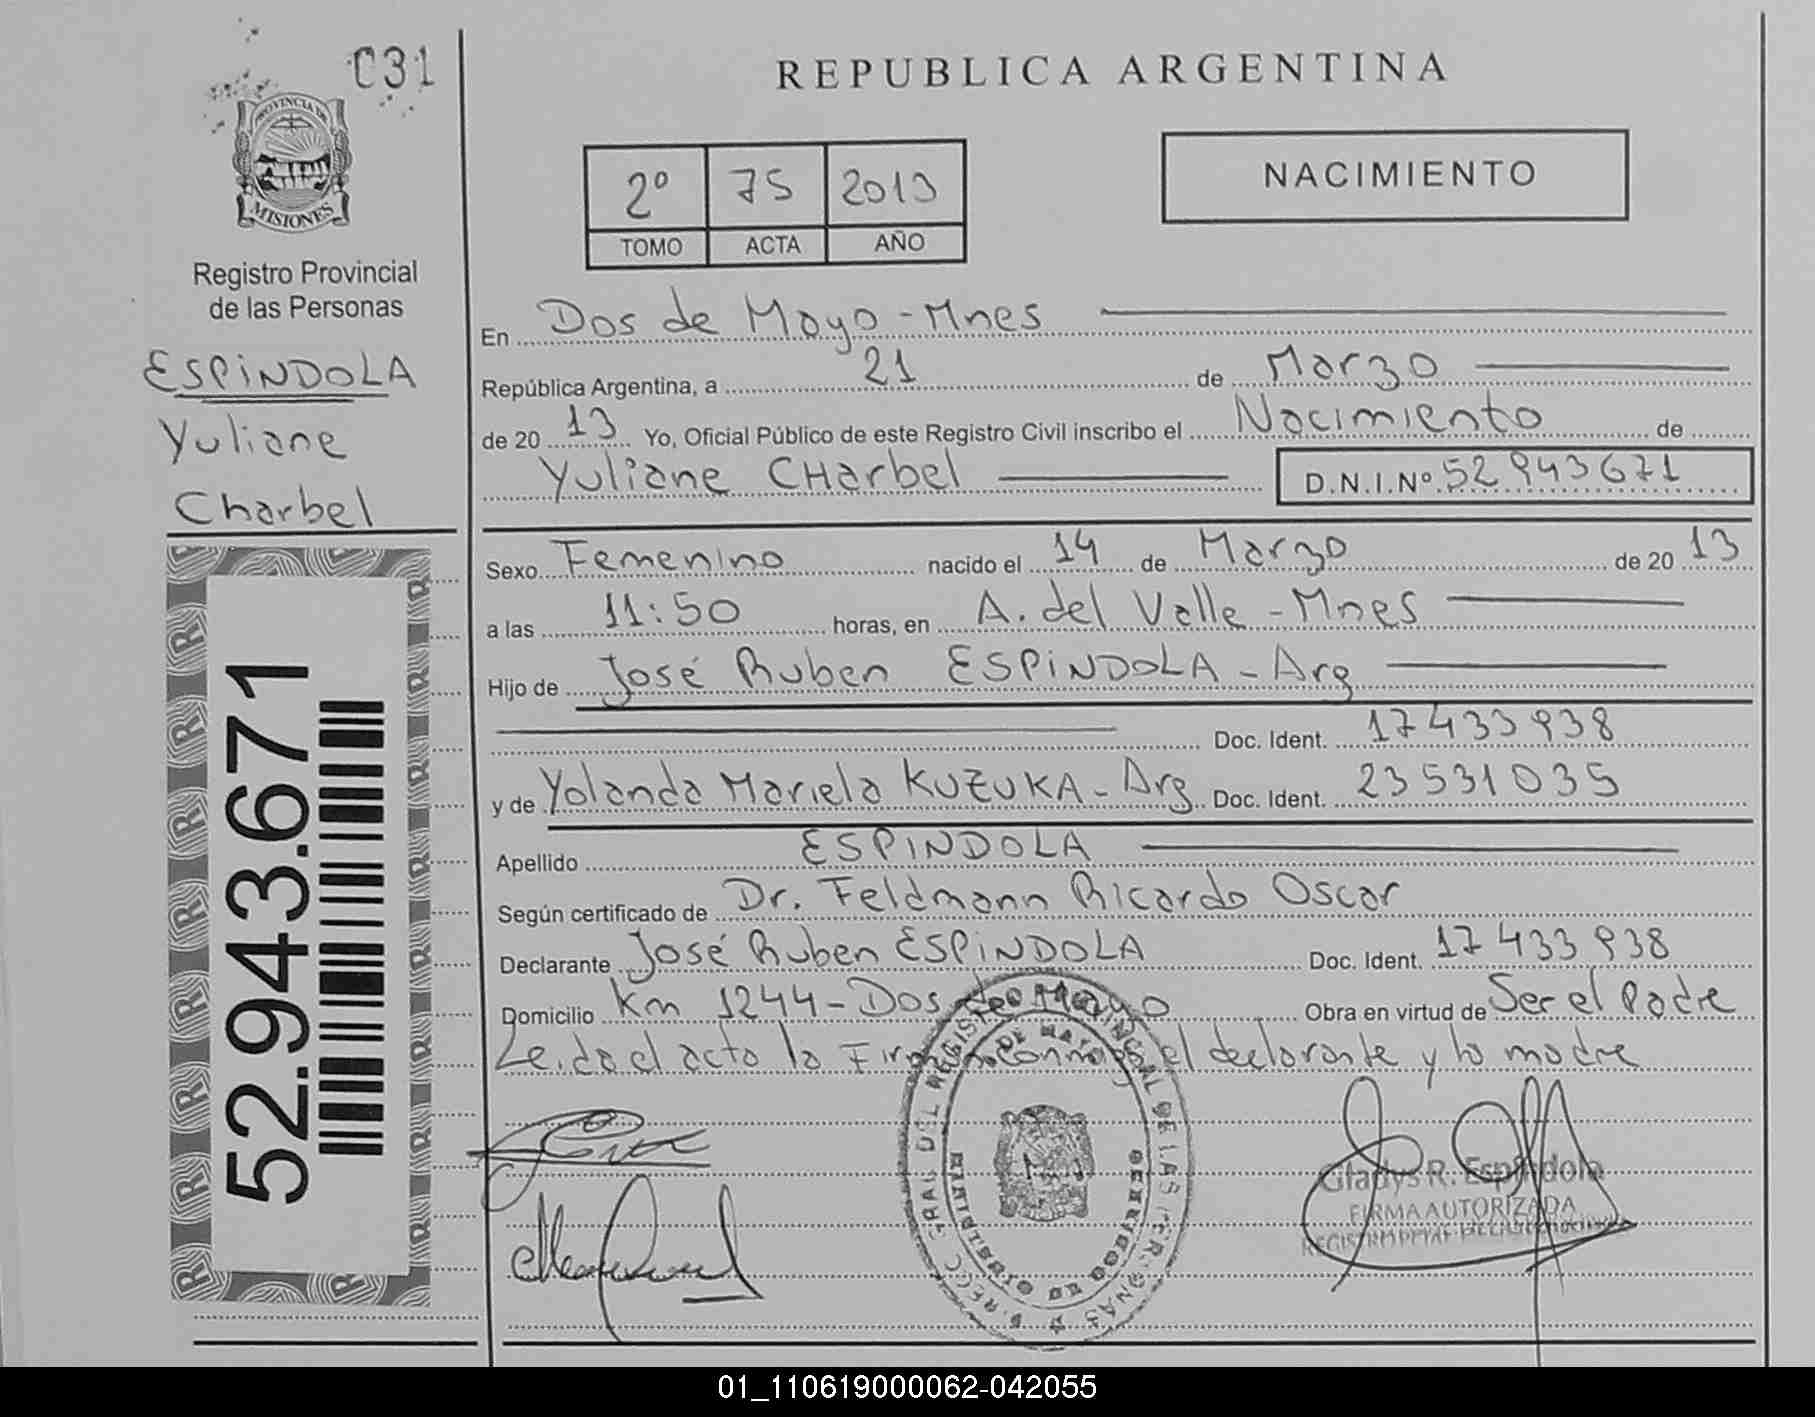 031
PROVINCIA DE
MISIONES
Registro Provincial
de las Personas
ESPINDOLA
Yuliane
Charbel
52.943.671
REPUBLICA ARGENTINA
2º 75 2013
TOMO ACTA AÑO
NACIMIENTO
En Dos de Mayo - Mnes
República Argentina, a 21 de Marzo
de 20 13 Yo, Oficial Público de este Registro Civil inscribo el Nacimiento de
Yuliane CHarbel D.N.I.Nº 52 943 671
Sexo Femenino nacido el 14 de Marzo de 20 13
a las 11:50 horas, en A. del Valle - Mnes
Hijo de José Ruben ESPINDOLA - Arg
Doc. Ident. 17 433 938
y de Yolanda Mariela KUZUKA - Arg Doc. Ident. 23 531 035
Apellido ESPINDOLA
Según certificado de Dr. Feldmann Ricardo Oscar
Declarante José Ruben ESPINDOLA Doc. Ident. 17 433 938
Domicilio Km 1244 - Dos de Mayo Obra en virtud de Ser el Padre
Leida el acta la Firman conmigo el declarante y la madre
Gladys R. Espíndola
FIRMA AUTORIZADA
01_110619000062-042055